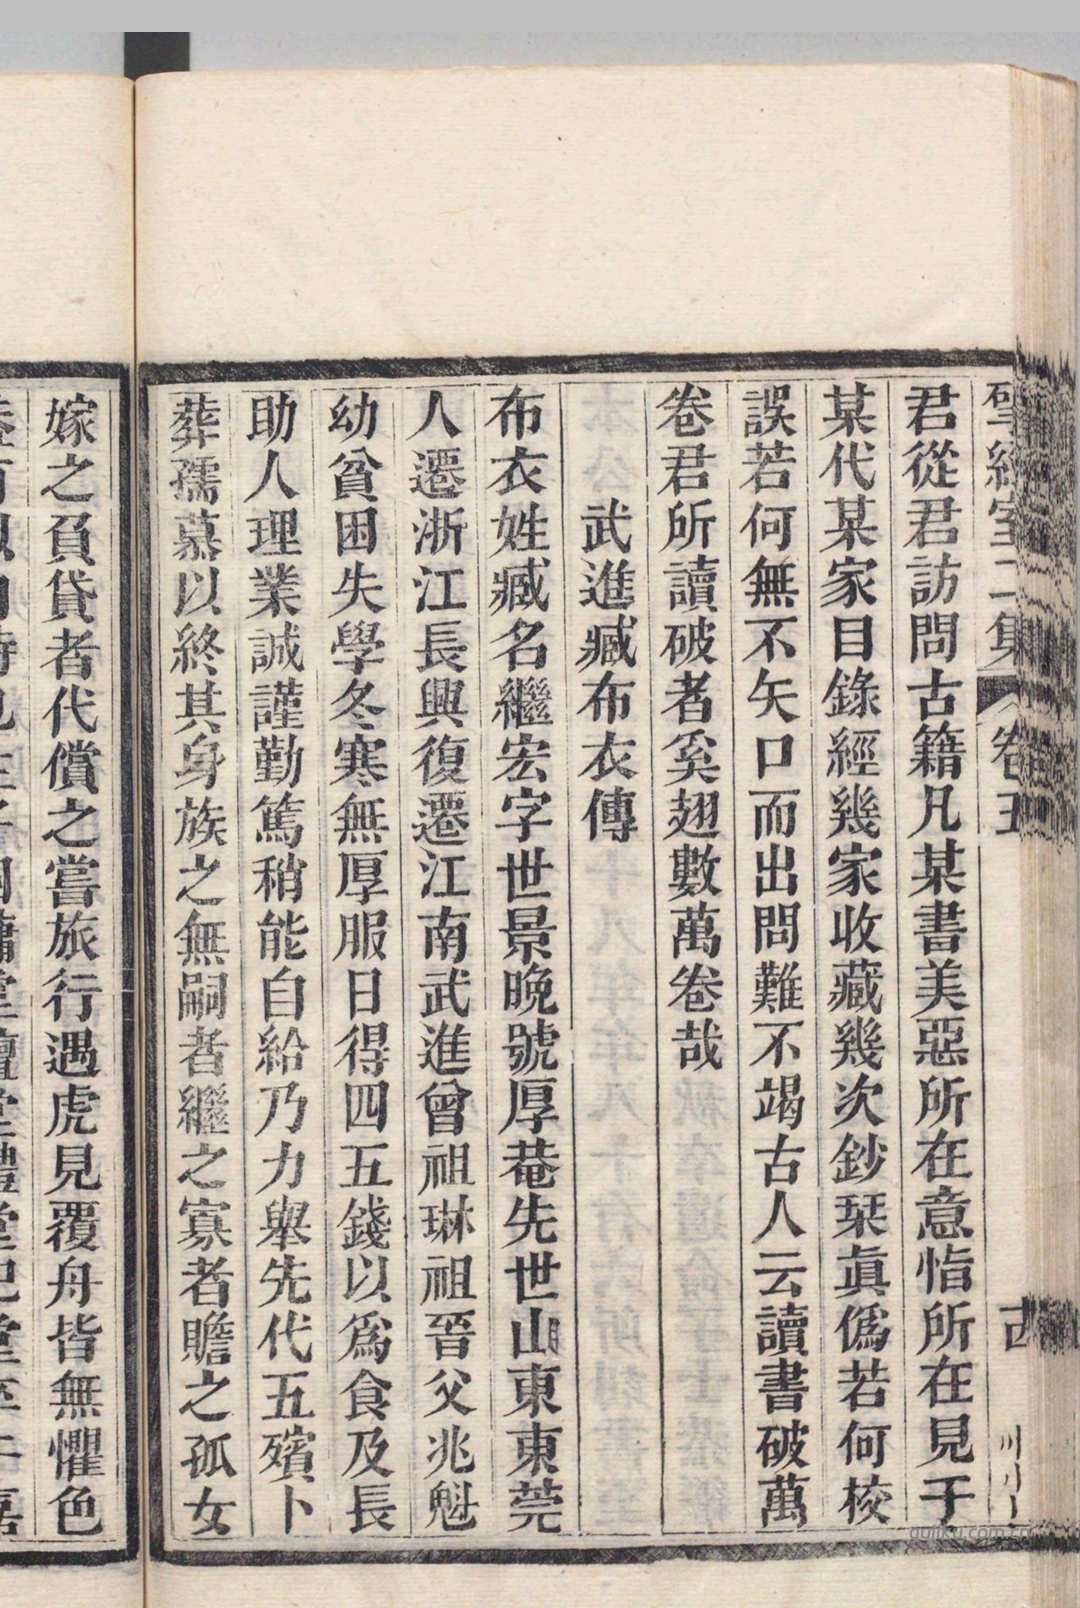 揅經室二集 卷五
君從君訪問古籍凡某書美惡所在意恉所在見于
某代某家目錄經幾家收藏幾次鈔栞眞僞若何校
誤若何無不矢口而出問難不竭古人云讀書破萬
卷君所讀破者奚翅數萬卷哉
武進臧布衣傳
布衣姓臧名繼宏字世景晚號厚菴先世山東東莞
人遷浙江長興復遷江南武進曾祖琳祖晉父兆魁
幼貧困失學冬寒無厚服日得四五錢以爲食及長
助人理業誠謹勤篤稍能自給乃力舉先代五殯卜
葬孺慕以終其身族之無嗣者繼之寡者贍之孤女
嫁之負貸者代償之嘗旅行遇虎見覆舟皆無懼色
gujiku.com.cn